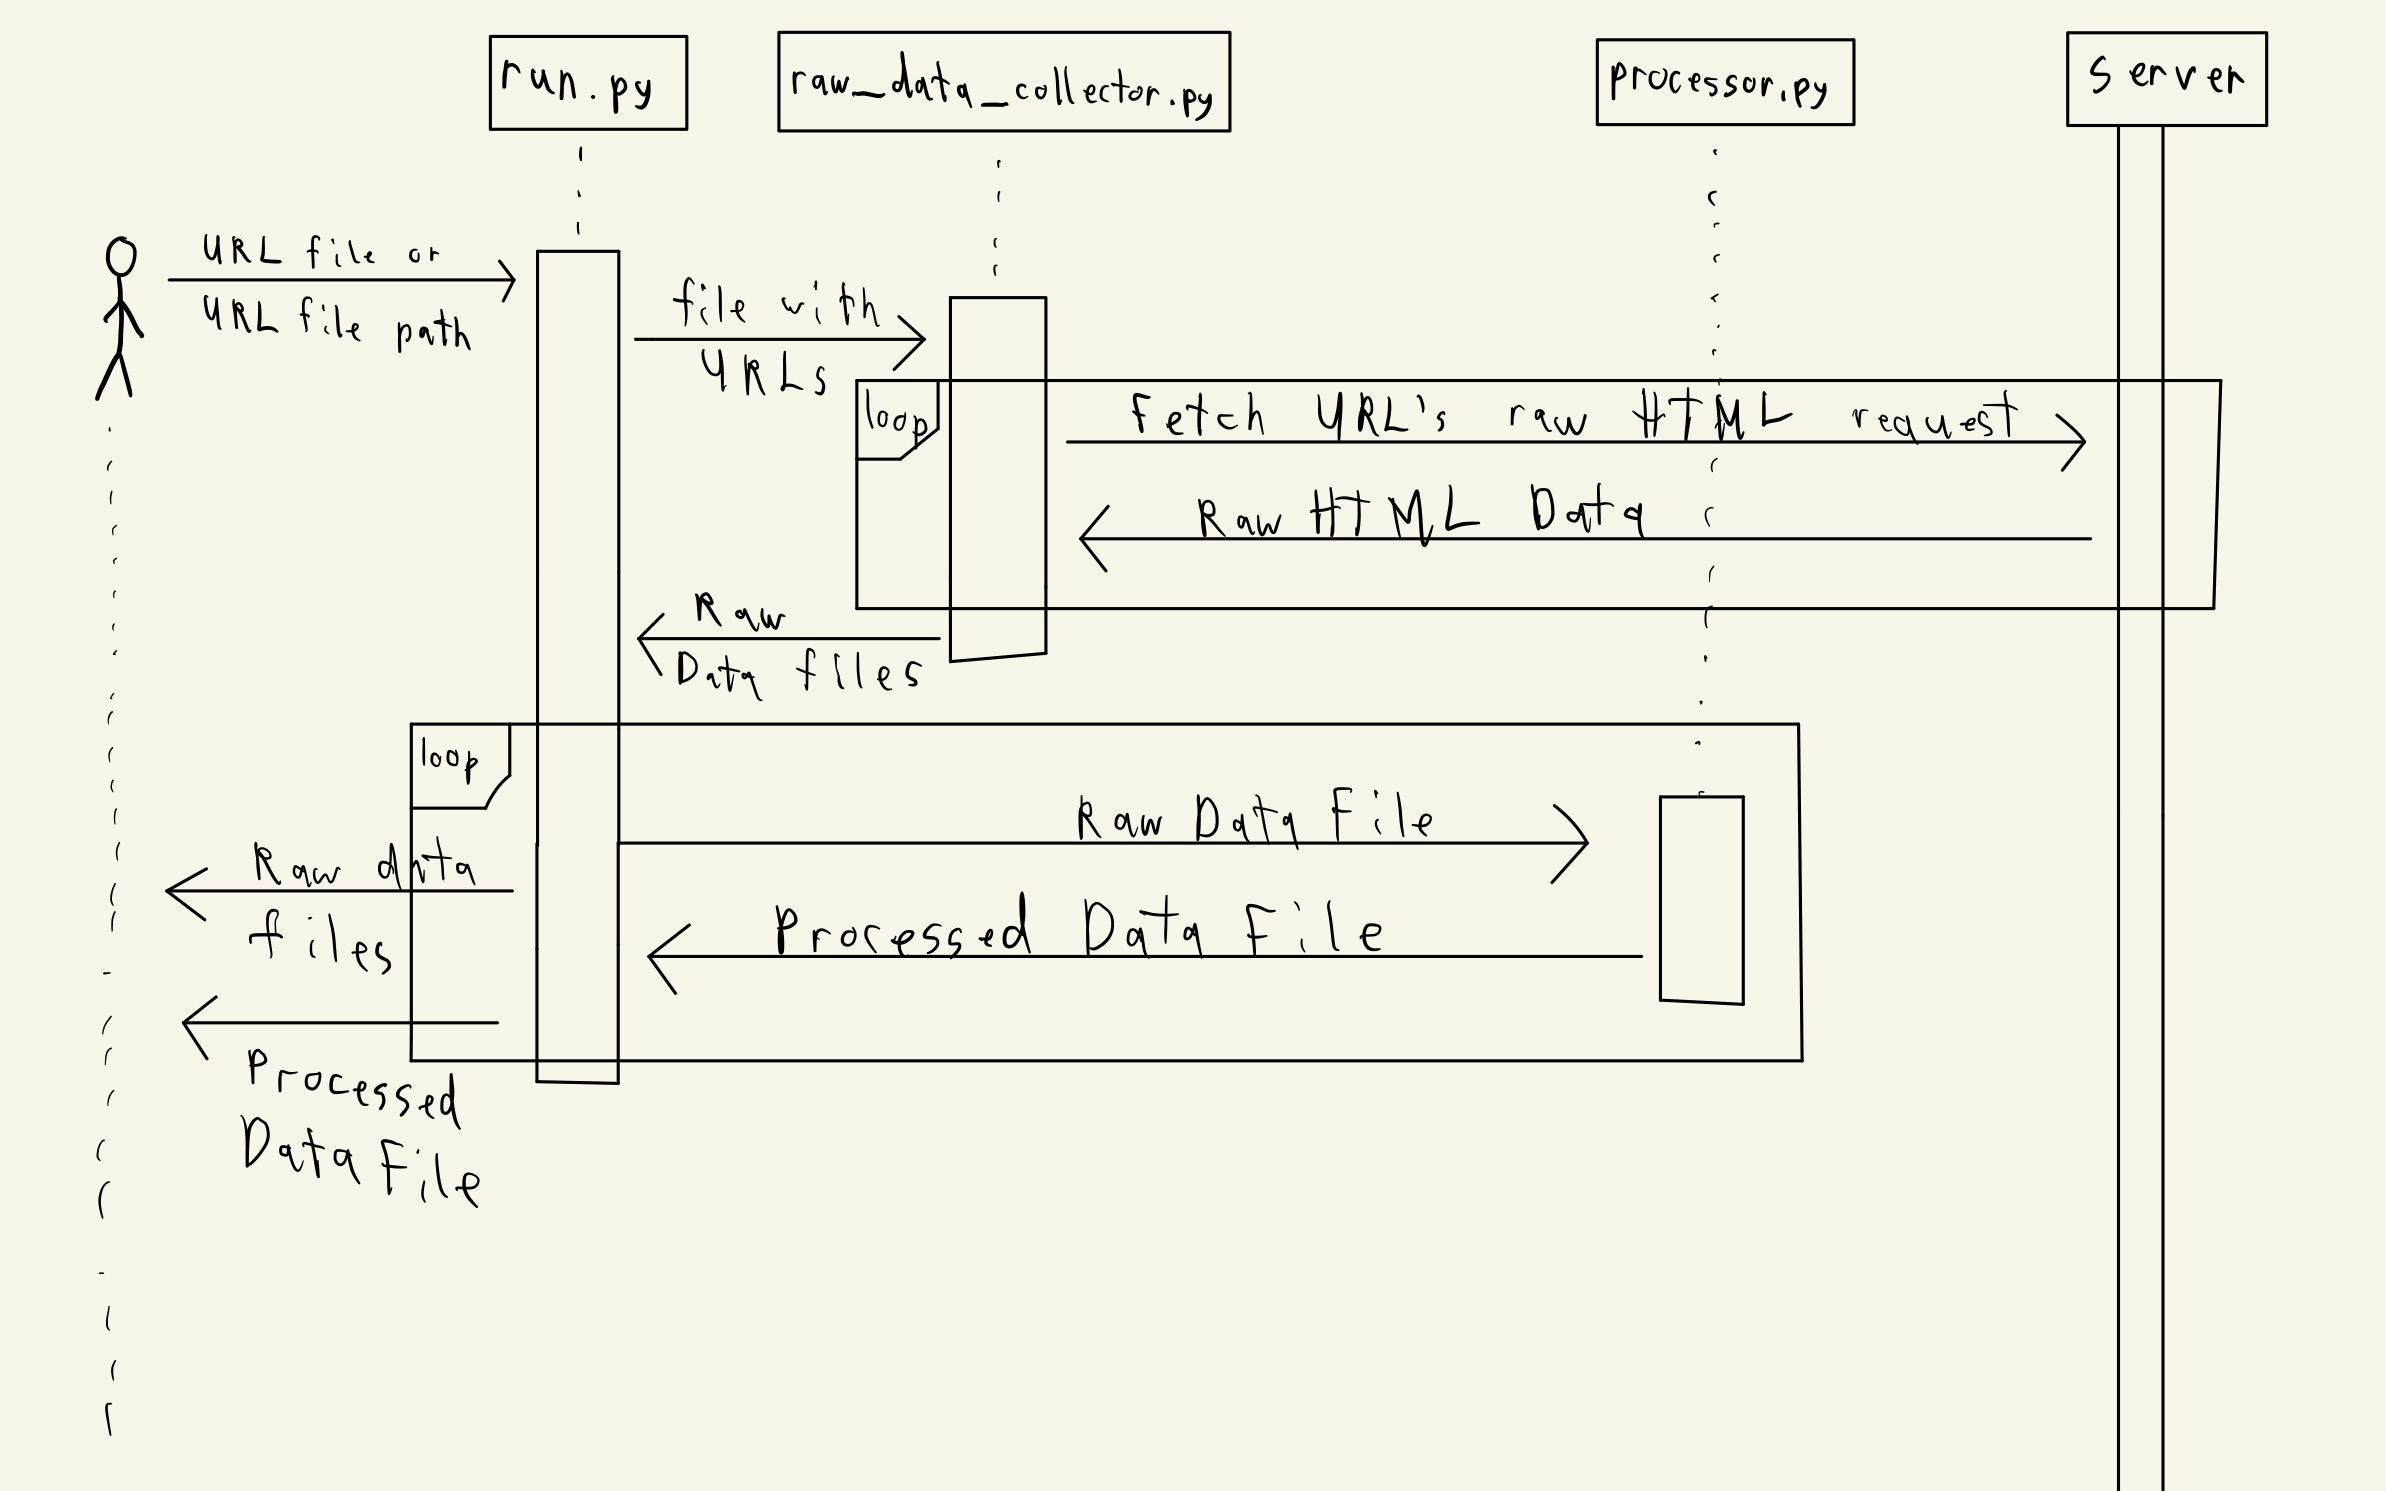 run.py
raw_data_collector.py
processor.py
server
URL file or
URL file path
file with
URLs
loop
Fetch URL's raw HTML request
Raw HTML Data
Raw
Data files
loop
Raw Data File
Raw data
files
Processed Data File
Processed
Data File